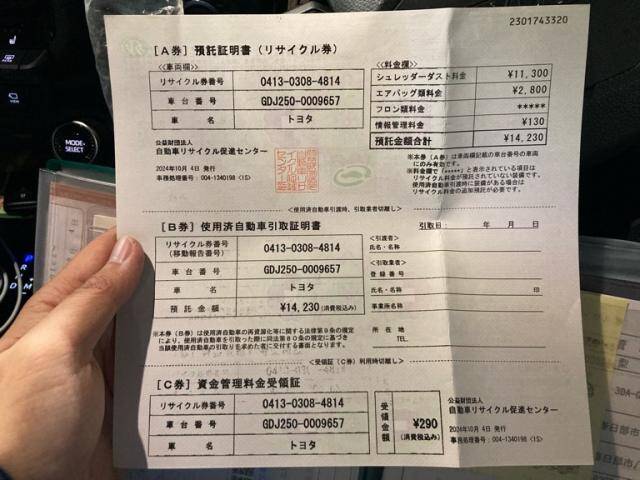 2301743320
[A券] 預託証明書 (リサイクル券)
<車両欄>
リサイクル券番号 0413-0308-4814
車台番号 GDJ250-0009657
車名 トヨタ
<料金欄>
シュレッダーダスト料金 ¥11,300
エアバッグ類料金 ¥2,800
フロン類料金 *****
情報管理料金 ¥130
預託金額合計 ¥14,230
公益財団法人
自動車リサイクル促進センター
2024年10月4日 発行
事務処理番号：004-1340198 (1S)
※本券（A券）は車両欄記載の車台番号の車両
にのみ有効です。
※料金欄で「*****」と表示されている項目は
リサイクル料金が預託されていない装備です。
使用済自動車引渡時に装備がある場合は
リサイクル料金の追加預託が必要です。
<使用済自動車引渡時、引取業者切離し>
[B券] 使用済自動車引取証明書
引取日： 年 月 日
リサイクル券番号
(移動報告番号) 0413-0308-4814
車台番号 GDJ250-0009657
車名 トヨタ
預託金額 ¥14,230 (消費税込み)
<引渡者>
氏名・名称
<引取業者>
登録番号
氏名・名称 印
事業所名称
所在地
TEL.
※本券（B券）は使用済自動車の再資源化等に関する法律第9条の規定
により、使用済自動車を引取った際に同法第80条の規定に基づき
当該使用済自動車の引取りを求めた者に交付する書面となります。
<受領証（C券）利用時切離し>
[C券] 資金管理料金受領証
リサイクル券番号 0413-0308-4814
車台番号 GDJ250-0009657
車名 トヨタ
受領金額 ¥290
(消費税込み)
公益財団法人
自動車リサイクル促進センター
2024年10月4日 発行
事務処理番号：004-1340198 (1S)
MODE
SELECT
VIEW